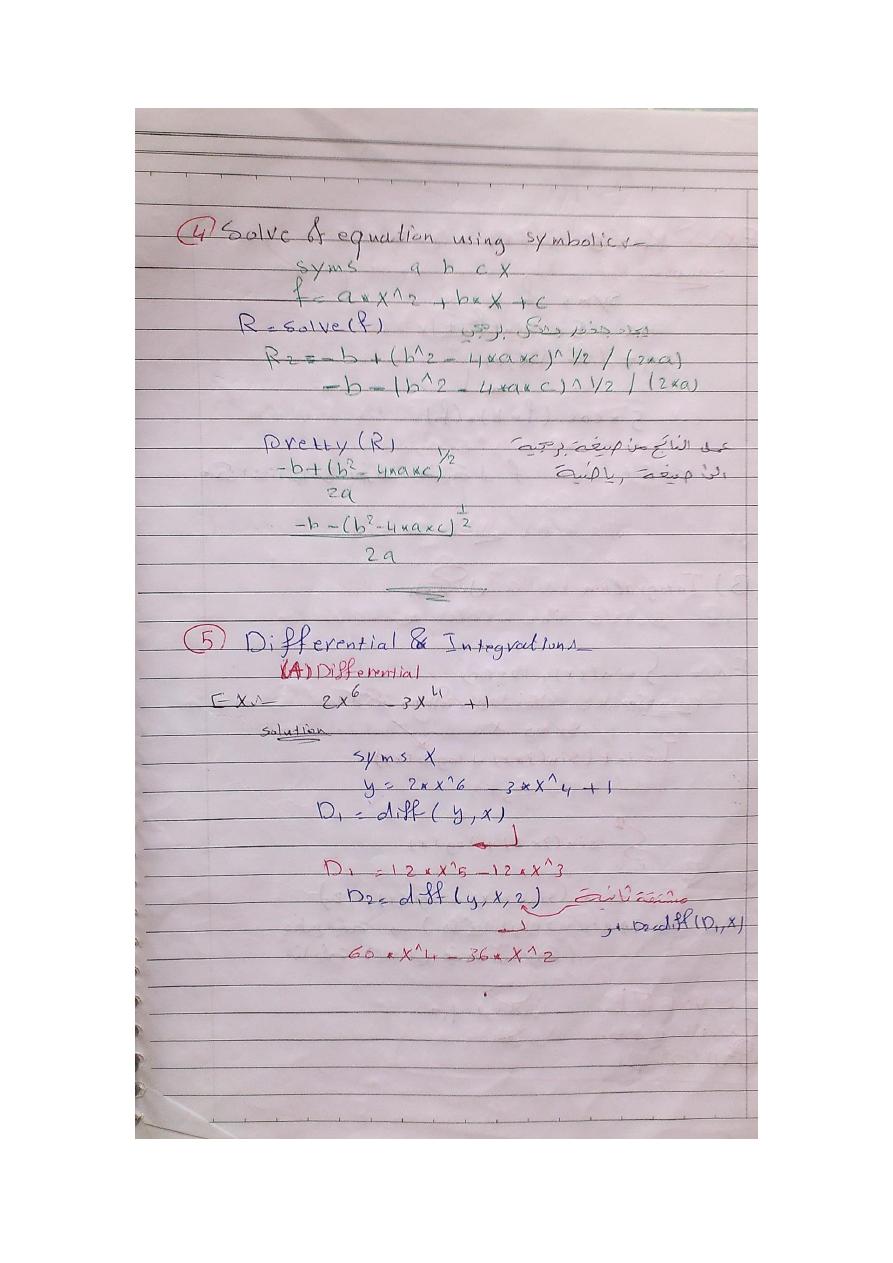 4 Solve of equation using symbolic:-
syms a b c x
f = a*x^2 + b*x + c
R = solve(f) ايجاد جذور بشكل برمجي
R2 = -b + (b^2 - 4*a*c)^1/2 / (2*a)
-b - (b^2 - 4*a*c)^1/2 / (2*a)
pretty(R) عمل الناتج من صيغة برمجية
الى صيغة رياضية
-b+(b²-4*a*c)^1/2
2a
-b-(b²-4*a*c)^1/2
2a
5 Differential & Integrations
(A) Differential
Ex:- 2x⁶ -3x⁴ +1
solution
syms x
y = 2*x^6 -3*x^4 +1
D₁ = diff(y,x)
D₁ = 12*x^5 -12*x^3
D₂ = diff(y,x,2) مشتقة ثانية
او D₂=diff(D₁,x)
60*x^4 - 36*x^2